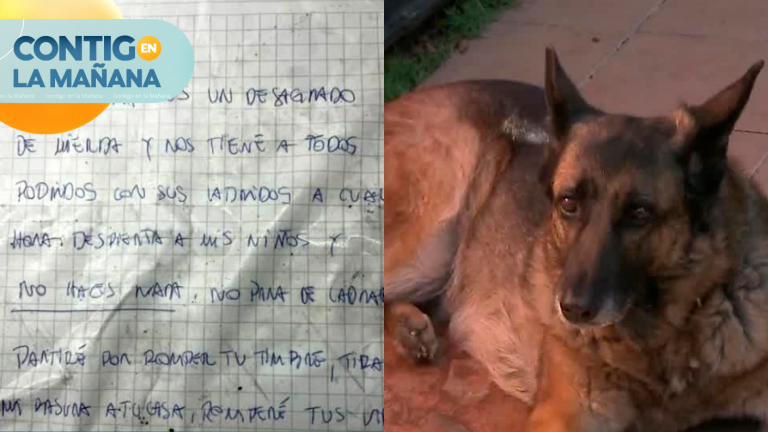 CONTIGO EN
LA MAÑANA
UN DESAGRADO
DE MIERDA Y NOS TIENE A TODOS
PODRIDOS CON SUS LADRIDOS A
HORA. DESPIERTA A MIS NIÑOS Y
NO HACES NADA, NO PARA DE LADRA
PARTIRÉ POR ROMPER TU TIMBRE, TIRA
MI BASURA A TU CASA, ROMPERÉ TUS